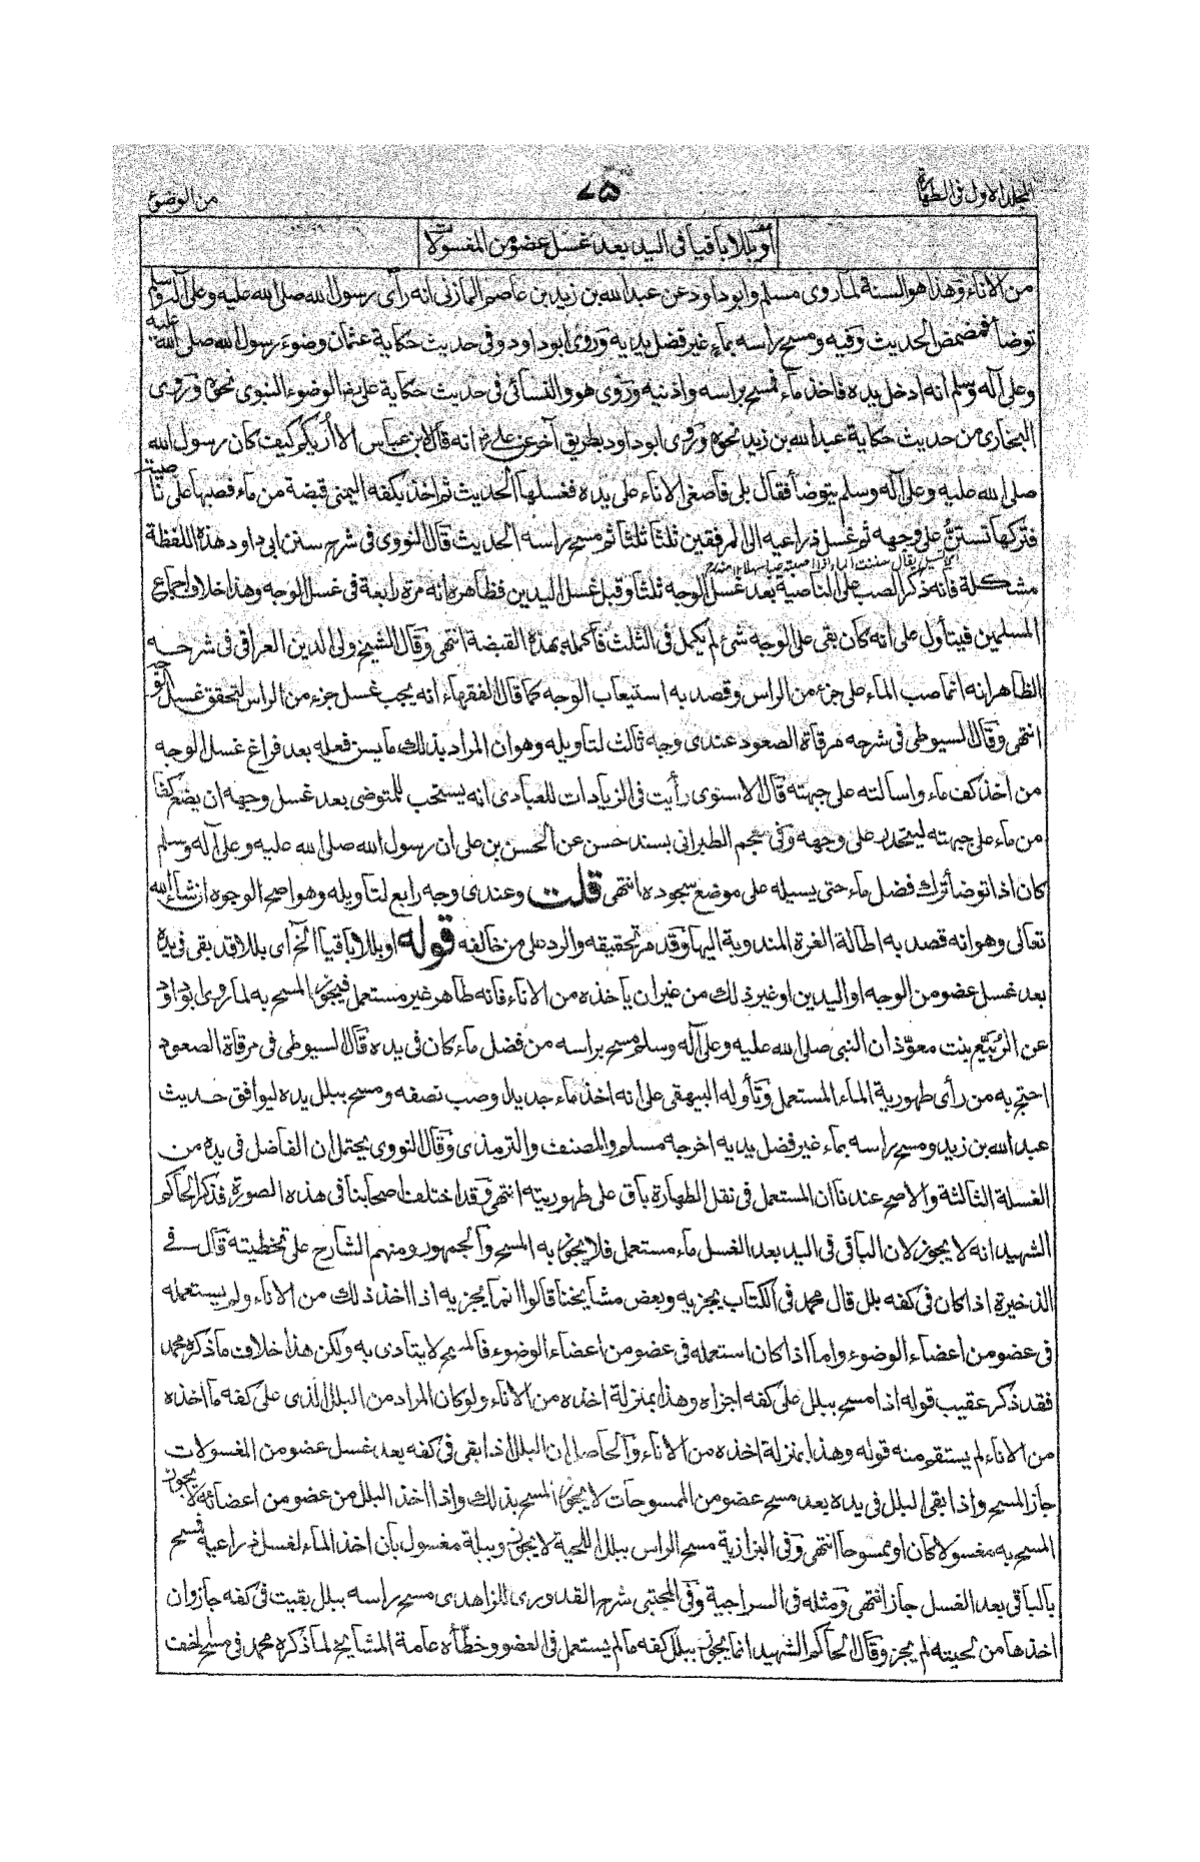 المجلد الاول فى الطهارة
٧٥
من الوضوء
او بللا باقيا فى اليد بعد غسل عضو من المغسولات
من الاناء وهذا هو السنة لما روى مسلم وابو داود عن عبد الله بن زيد بن عاصم المازنى انه رأى رسول الله صلى الله عليه وعلى آله وسلم
توضأ فمضمض الحديث وفيه ومسح براسه بماء غير فضل يديه وروى ابو داود فى حديث حكاية عثمان وضوء رسول الله صلى الله عليه
وعلى آله وسلم انه ادخل يده فاخذ ماء فمسح براسه واذنيه وروى هو والنسائى فى حديث حكاية على رض الوضوء النبوى نحوه وروى
البخارى من حديث حكاية عبد الله بن زيد نحوه وروى ابو داود بطريق آخر عن على رض انه قال لابن عباس الا اريكم كيف كان رسول الله
صلى الله عليه وعلى آله وسلم يتوضأ فقال بلى فاصغى الاناء على يده فغسلها الحديث ثم اخذ بكفه اليمنى قبضة من ماء فصبها على ناصيته
فتركها تستن على وجهه ثم غسل ذراعيه الى المرفقين ثلثا ثلثا ثم مسح راسه الحديث قال النووى فى شرح سنن ابى داود هذه اللفظة
مشكلة فانه ذكر الصب على الناصية بعد غسل الوجه ثلثا وقبل غسل اليدين فظاهره انه مرة رابعة فى غسل الوجه وهذا خلاف اجماع
المسلمين فيتأول على انه كان بقى على الوجه شئ لم يكمل فى الثلث فاكمله بهذه القبضة انتهى وقال الشيخ ولى الدين العراقى فى شرحه
الظاهر انه انما صب الماء على جزء من الراس وقصد به استيعاب الوجه كما قال الفقهاء انه يجب غسل جزء من الراس لتحقق غسل الوجه
انتهى وقال السيوطى فى شرحه مرقاة الصعود عندى وجه ثالث لتاويله وهو ان المراد بذلك ما يسن فعله بعد فراغ غسل الوجه
من اخذ كف ماء واسالته على جبهته قال الاسنوى رأيت فى الزيادات للعبادى انه يستحب للمتوضى بعد غسل وجهه ان يضع كفا
من ماء على جبهته ليتحدر على وجهه وفى معجم الطبرانى بسند حسن عن الحسن بن على ان رسول الله صلى الله عليه وعلى آله وسلم
كان اذا توضأ ترك فضل ماء حتى يسيله على موضع سجوده انتهى قلت وعندى وجه رابع لتاويله وهو اصح الوجوه ان شاء الله
تعالى وهو انه قصد به اطالة الغرة المندوبة اليها وقد مر تحقيقه والرد على من خالفه قوله او بللا باقيا الخ اى بللا قد بقى فى يده
بعد غسل عضو من الوجه او اليدين او غير ذلك من غير ان ياخذه من الاناء فانه طاهر غير مستعمل فيجوز المسح به لما روى ابو داود
عن الربيع بنت معوذ ان النبى صلى الله عليه وعلى آله وسلم مسح براسه من فضل ماء كان فى يده قال السيوطى فى مرقاة الصعود
احتج به من رأى طهورية الماء المستعمل وتأوله البيهقى على انه اخذ ماء جديدا وصب نصفه ومسح ببلل يده ليوافق حديث
عبد الله بن زيد ومسح براسه بماء غير فضل يديه اخرجه مسلم والمصنف والترمذى وقال النووى يحتمل ان الفاضل فى يده من
الغسلة الثالثة والاصح عندنا ان المستعمل فى نفل الطهارة باق على طهوريته انتهى وقد اختلف اصحابنا فى هذه الصورة فذكر الحاكم
الشهيد انه لا يجوز لان الباقى فى اليد بعد الغسل ماء مستعمل فلا يجوز به المسح والجمهور ومنهم الشارح على تخطيته قال فى
الذخيرة اذا كان فى كفه بلل قال محمد فى الكتاب يجزيه وبعض مشايخنا قالوا انما يجزيه اذا اخذ ذلك من الاناء ولم يستعمله
فى عضو من اعضاء الوضوء واما اذا كان استعمله فى عضو من اعضاء الوضوء فالمسح لا يتادى به ولكن هذا خلاف ما ذكره محمد
فقد ذكر عقيب قوله اذا مسح ببلل على كفه اجزاه وهذا بمنزلة اخذه من الاناء ولو كان المراد من البلل الذى على كفه ما اخذه
من الاناء لم يستقم منه قوله وهذا بمنزلة اخذه من الاناء والحاصل ان البلل اذا بقى فى كفه بعد غسل عضو من المغسولات
جاز المسح واذا بقى البلل فى يده بعد مسح عضو من الممسوحات لا يجوز المسح بذلك واذا اخذ البلل من عضو من اعضائه لا يجوز
المسح به مغسولا كان او ممسوحا انتهى وفى البزازية مسح الراس ببلل اللحية لا يجوز وببلة مغسول بأن اخذ الماء لغسل ذراعيه فمسح
بالباقى بعد الغسل جاز انتهى ومثله فى السراجية وفى المجتبى شرح القدورى للزاهدى مسح راسه ببلل بقيت فى كفه جاز وان
اخذها من لحيته لم يجز وقال الحاكم الشهيد انما يجوز ببلل كفه ما لم يستعمل فى العضو وخطأه عامة المشايخ لما ذكره محمد فى مسح الخف